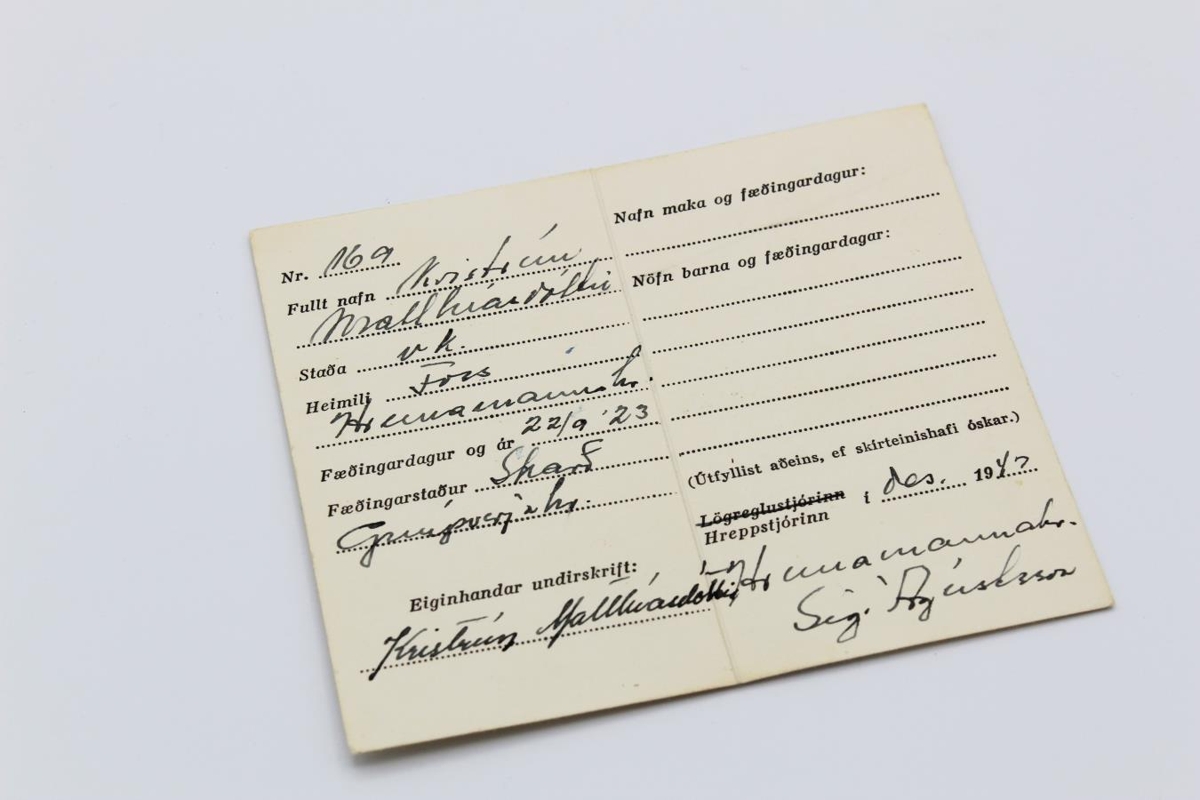 Nr. 169
Fullt nafn Kristrún
Matthíasdóttir
Staða vk.
Heimili Foss
Hrunamannahr.
Fæðingardagur og ár 22/9 '23
Fæðingarstaður Skarð
Gnúpverjahr.
Eiginhandar undirskrift:
Kristrún Matthíasdóttir
Nafn maka og fæðingardagur:
Nöfn barna og fæðingardagar:
(Útfyllist aðeins, ef skírteinishafi óskar.)
í des. 1947
Lögreglustjórinn
Hreppstjórinn
Hrunamannahr.
Sig. Ágústsson